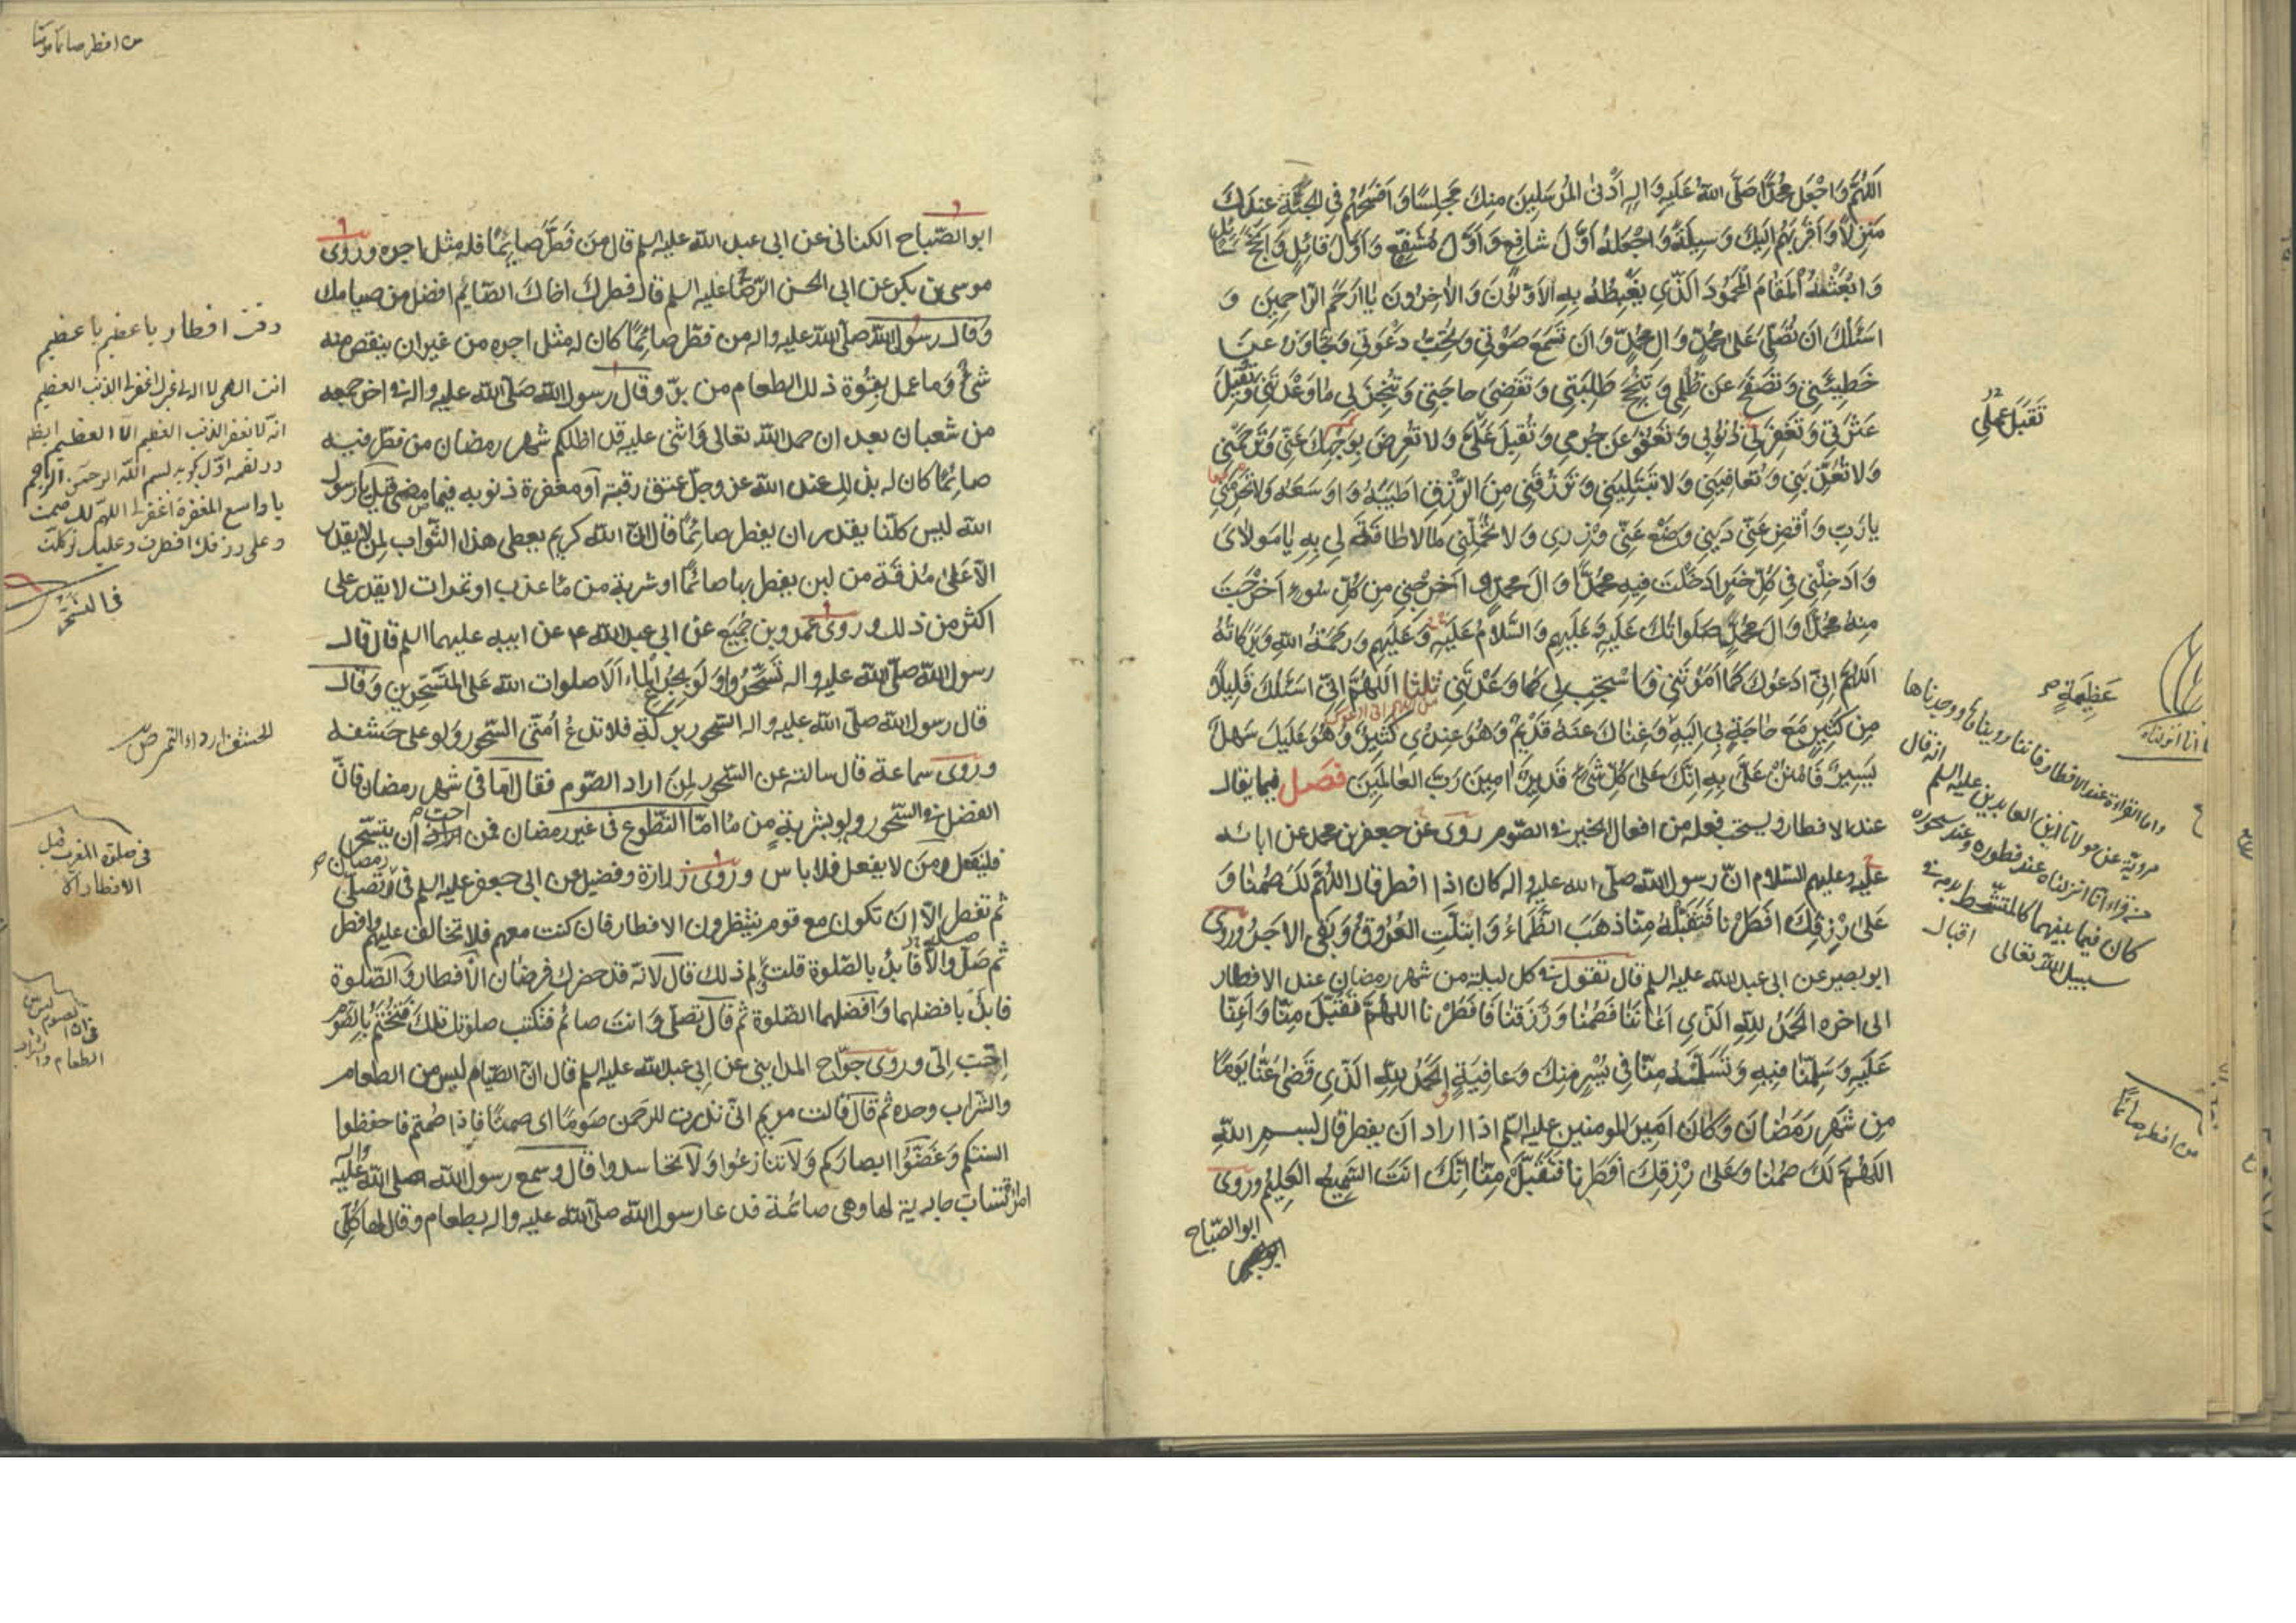 اَللّٰهُمَّ وَاجْعَلْ مُحَمَّدًا صَلَّى اللهُ عَلَيْهِ وَالِهِ اَدْنَى الْمُرْسَلِينَ مِنْكَ مَجْلِسًا وَاَفْسَحَهُمْ فِي الْجَنَّةِ عِنْدَكَ
مَنْزِلًا وَاَقْرَبَهُمْ اِلَيْكَ وَسِيلَةً وَاجْعَلْهُ اَوَّلَ شَافِعٍ وَاَوَّلَ مُشَفَّعٍ وَاَوَّلَ قَائِلٍ وَاَنْجَحَ سَائِلٍ
وَابْعَثْهُ الْمَقَامَ الْمَحْمُودَ الَّذِي يَغْبِطُهُ بِهِ الْاَوَّلُونَ وَالْاٰخِرُونَ يَا اَرْحَمَ الرَّاحِمِينَ وَ
اَسْئَلُكَ اَنْ تُصَلِّيَ عَلَى مُحَمَّدٍ وَالِ مُحَمَّدٍ وَاَنْ تَسْمَعَ صَوْتِي وَتُجِيبَ دَعْوَتِي وَتَجَاوَزَ عَنْ
خَطِيئَتِي وَتَصْفَحَ عَنْ ظُلْمِي وَتُنْجِحَ طَلِبَتِي وَتَقْضِيَ حَاجَتِي وَتُنْجِزَ لِي مَا وَعَدْتَنِي وَتُقِيلَ
عَثْرَتِي وَتَغْفِرَ لِي ذُنُوبِي وَتَعْفُوَ عَنْ جُرْمِي وَتُقْبِلَ عَلَيَّ وَلَا تُعْرِضَ بِوَجْهِكَ عَنِّي وَتَرْحَمَنِي
وَلَا تُعَذِّبَنِي وَتُعَافِيَنِي وَلَا تَبْتَلِيَنِي وَتَرْزُقَنِي مِنَ الرِّزْقِ اَطْيَبَهُ وَاَوْسَعَهُ وَلَا تَحْرِمَنِي
يَا رَبِّ وَاقْضِ عَنِّي دَيْنِي وَضَعْ عَنِّي وِزْرِي وَلَا تُحَمِّلْنِي مَا لَا طَاقَةَ لِي بِهِ يَا مَوْلَايَ
وَاَدْخِلْنِي فِي كُلِّ خَيْرٍ اَدْخَلْتَ فِيهِ مُحَمَّدًا وَالَ مُحَمَّدٍ وَاَخْرِجْنِي مِنْ كُلِّ سُوءٍ اَخْرَجْتَ
مِنْهُ مُحَمَّدًا وَالَ مُحَمَّدٍ صَلَوَاتُكَ عَلَيْهِ وَعَلَيْهِمْ وَالسَّلَامُ عَلَيْهِ وَعَلَيْهِمْ وَرَحْمَةُ اللهِ وَبَرَكَاتُهُ
اَللّٰهُمَّ اِنِّي اَدْعُوكَ كَمَا اَمَرْتَنِي فَاسْتَجِبْ لِي كَمَا وَعَدْتَنِي ثلثا اَللّٰهُمَّ اِنِّي اَسْئَلُكَ قَلِيلًا
مِنْ كَثِيرٍ مَعَ حَاجَةٍ بِي اِلَيْهِ وَغِنَاكَ عَنْهُ قَدِيمٌ وَهُوَ عِنْدِي كَثِيرٌ وَهُوَ عَلَيْكَ سَهْلٌ
يَسِيرٌ فَامْنُنْ عَلَيَّ بِهِ اِنَّكَ عَلَى كُلِّ شَيْءٍ قَدِيرٌ اٰمِينَ رَبَّ الْعَالَمِينَ فصل فيما يقال
عند الافطار ويستحب فعله من افعال الخير في الصوم روى عن جعفر بن محمد عن ابائه
عليه وعليهم السلام انّ رسول الله صلى الله عليه واله كان اذا افطر قال اَللّٰهُمَّ لَكَ صُمْنَا وَ
عَلَى رِزْقِكَ اَفْطَرْنَا فَتَقَبَّلْهُ مِنَّا ذَهَبَ الظَّمَاءُ وَابْتَلَّتِ الْعُرُوقُ وَبَقِيَ الْاَجْرُ وروى
ابو بصير عن ابى عبد الله عليه السلم قال تقول في كل ليلة من شهر رمضان عند الافطار
الى اخره اَلْحَمْدُ لِلّٰهِ الَّذِي اَعَانَنَا فَصُمْنَا وَرَزَقَنَا فَاَفْطَرْنَا اللّٰهُمَّ تَقَبَّلْ مِنَّا وَاَعِنَّا
عَلَيْهِ وَسَلِّمْنَا فِيهِ وَتَسَلَّمْهُ مِنَّا فِي يُسْرٍ مِنْكَ وَعَافِيَةٍ اَلْحَمْدُ لِلّٰهِ الَّذِي قَضَى عَنَّا يَوْمًا
مِنْ شَهْرِ رَمَضَانَ وَكَانَ اَمِيرُ المومنين عليه السلم اذا اراد ان يفطر قال بسم اللهِ
اَللّٰهُمَّ لَكَ صُمْنَا وَعَلَى رِزْقِكَ اَفْطَرْنَا فَتَقَبَّلْ مِنَّا اِنَّكَ اَنْتَ السَّمِيعُ الْعَلِيمُ وروى
ابو الصّباح
تَقَبَّلْ عملي
عَظِيمَةٍ
واما القراءة عند الافطار فاننا رويناها ووجدناها
مروية عن مولانا زين العابدين عليه السلم انه قال
من قراء انا انزلناه عند فطوره وعند سحوره
كان فيما بينهما كالمتشحط بدمه في
سبيل الله تعالى اقبال
انا انزلناه
من افطر صائما
من افطر صائما مومنا
ابو الصّباح الكناني عن ابى عبد الله عليه السلم قال من فَطَّرَ صايِمًا فله مثل اجره وروى
موسى بن بكر عن ابى الحسن الرّضا عليه السلم قال فطرك اخاك الصّايم افضل من صيامك
وقال رسول الله صلّى الله عليه واله من فطّر صائمًا كان له مثل اجره من غير ان ينقص منه
شئ وما عمل بقوّة ذلك الطعام من برّ وقال رسول الله صلّى الله عليه واله في اخر جمعه
من شعبان بعد ان حمد الله تعالى واثنى عليه قد اظلكم شهر رمضان من فطّر فيه
صائمًا كان له بذلك عند الله عزّ وجلّ عتق رقبة ومغفرة ذنوبه فيما مضى قيل يا رسول
الله ليس كلّنا يقدر ان يفطر صائمًا قال انّ الله كريم يعطى هذا الثّواب لمن لا يقدر
الّا على مذقة من لبن يفطر بها صائمًا او شربة من ماء عذب او تمرات لا يقدر على
اكثر من ذلك وروى عمرو بن جميع عن ابى عبد الله ع عن ابيه عليهما السلم قال قال
رسول الله صلّى الله عليه واله تَسَحَّرُوا وَلَو بِجُرَعِ الْمَاءِ اَلَا صلوات الله على المتسحّرين وقال
قال رسول الله صلّى الله عليه واله السّحور بركة فلا تدع اُمّتى السّحور ولو على حشفه
وروى سماعة قال سالته عن السّحور لمن اراد الصّوم فقال امّا فى شهر رمضان فانّ
الفضل في السّحور ولو بشربةٍ من ماء امّا التّطوع فى غير رمضان فمن احبّ ان يتسحّر
فليفعل ومن لا يفعل فلا باس وروى زرارة وفضيل عن ابى جعفر عليه السلم فى رمضان تصلّى
ثم تفطر الّا ان تكون مع قوم ينتظرون الافطار فان كنت معهم فلا تخالف عليهم وافطر
ثم صلّ والّا فابدأ بالصّلوة قلت ولم ذلك قال لانّه قد حضرك فرضان الافطار والصّلوة
فابدأ بافضلهما وافضلهما الصّلوة ثم قال تصلّى وانت صائم فتكتب صلوتك تلك فتختم بالصّوم
احبّ الىّ وروى جرّاح المداينى عن ابى عبد الله عليه السلم قال انّ الصّيام ليس من الطعام
والشّراب وحده ثم قال قالت مريم انّى نذرت للرّحمن صومًا اى صمتًا فاذا صمتم فاحفظوا
السنتكم وغضّوا ابصاركم ولا تنازعوا ولا تحاسدوا قال وسمع رسول الله صلّى الله عليه واله
امراة تسابّ جارية لها وهى صائمة فدعا رسول الله صلّى الله عليه واله بطعام وقال لها كلى
وقت افطار يا عظيم يا عظيم
انت الهى لا اله لى غيرك اغفر لى الذنب العظيم
انه لا يغفر الذنب العظيم الا العظيم ايضا
در لقمه اوّل بسم الله الرحمن الرحيم
يا واسع المغفرة اغفر لى اللهم لك صمت
وعلى رزقك افطرت وعليك توكلت
فى التسحّر
الحشف اردء التمر ص
فى صلوة المغرب قبل
الافطار
الصوم ليس من
الطعام والشراب